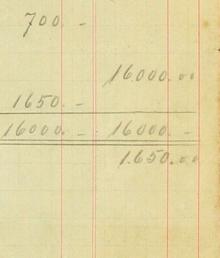 700. -
16000.00
1650. -
16000. - 16000. -
1.650.00